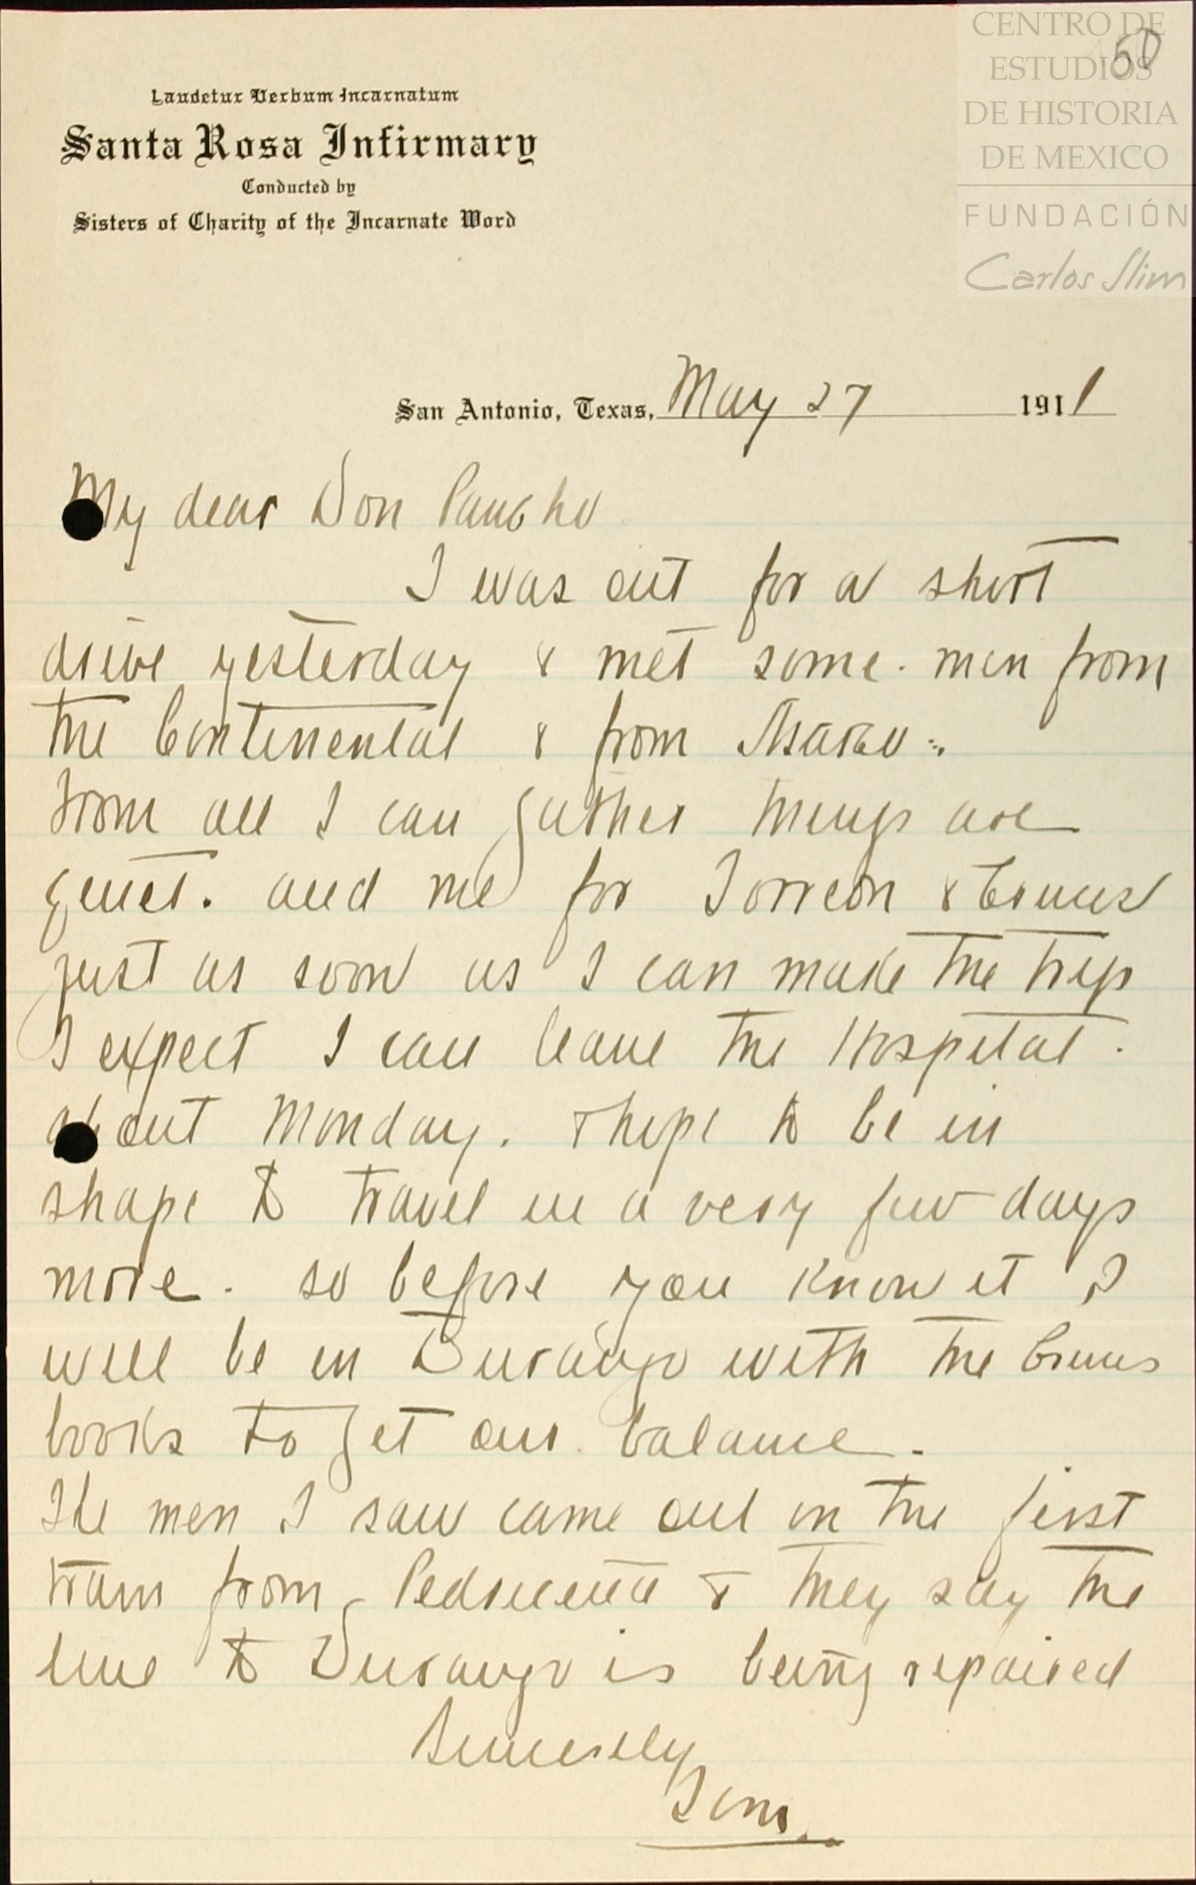 CENTRO DE
ESTUDIOS
DE HISTORIA
DE MEXICO
FUNDACIÓN
Carlos Slim
50
Laudetur Verbum Incarnatum
Santa Rosa Infirmary
Conducted by
Sisters of Charity of the Incarnate Word
San Antonio, Texas, May 27 1911
My dear Don Pancho
I was out for a short
drive yesterday & met some men from
the Continental & from
From all I can gather things are
quiet. and me for Torreon &
just as soon as I can make the trip
I expect I can leave the Hospital.
about Monday. & hope to be in
shape to travel in a very few days
more. so before you know it I
will be in Durango with the
books to get our balance.
The men I saw came out on the first
train from Pedriceña & they say the
line to Durango is being repaired
Sincerely
Tom.